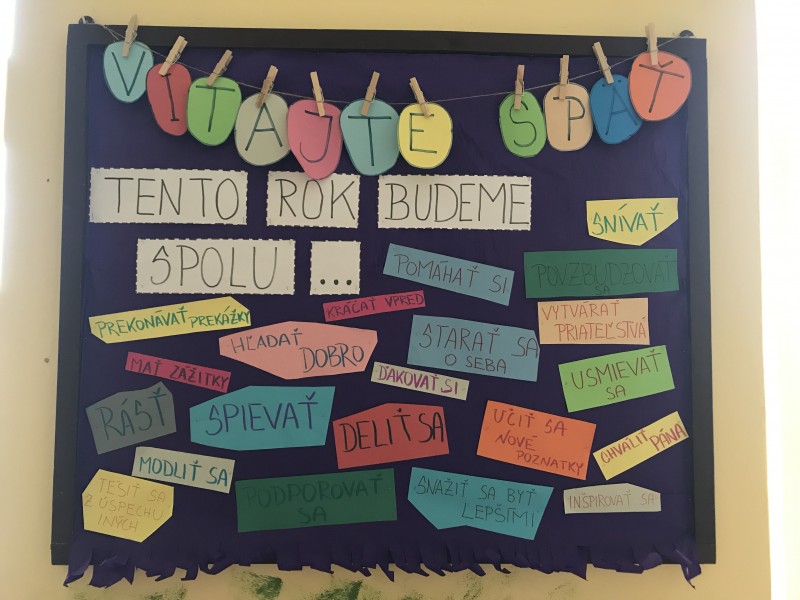 VITAJTE SPÄŤ
TENTO ROK BUDEME
SPOLU ...
SNÍVAŤ
POMÁHAŤ SI
POVZBUDZOVAŤ
SA
PREKONÁVAŤ PREKÁŽKY
KRÁČAŤ VPRED
VYTVÁRAŤ
PRIATEĽSTVÁ
HĽADAŤ
DOBRO
STARAŤ SA
O SEBA
MAŤ ZÁŽITKY
ĎAKOVAŤ SI
USMIEVAŤ
SA
RÁSŤ
SPIEVAŤ
DELIŤ SA
UČIŤ SA
NOVÉ
POZNATKY
CHVÁLIŤ PÁNA
MODLIŤ SA
TEŠIŤ SA
Z ÚSPECHU
INÝCH
PODPOROVAŤ
SA
SNAŽIŤ SA BYŤ
LEPŠÍMI
INŠPIROVAŤ SA